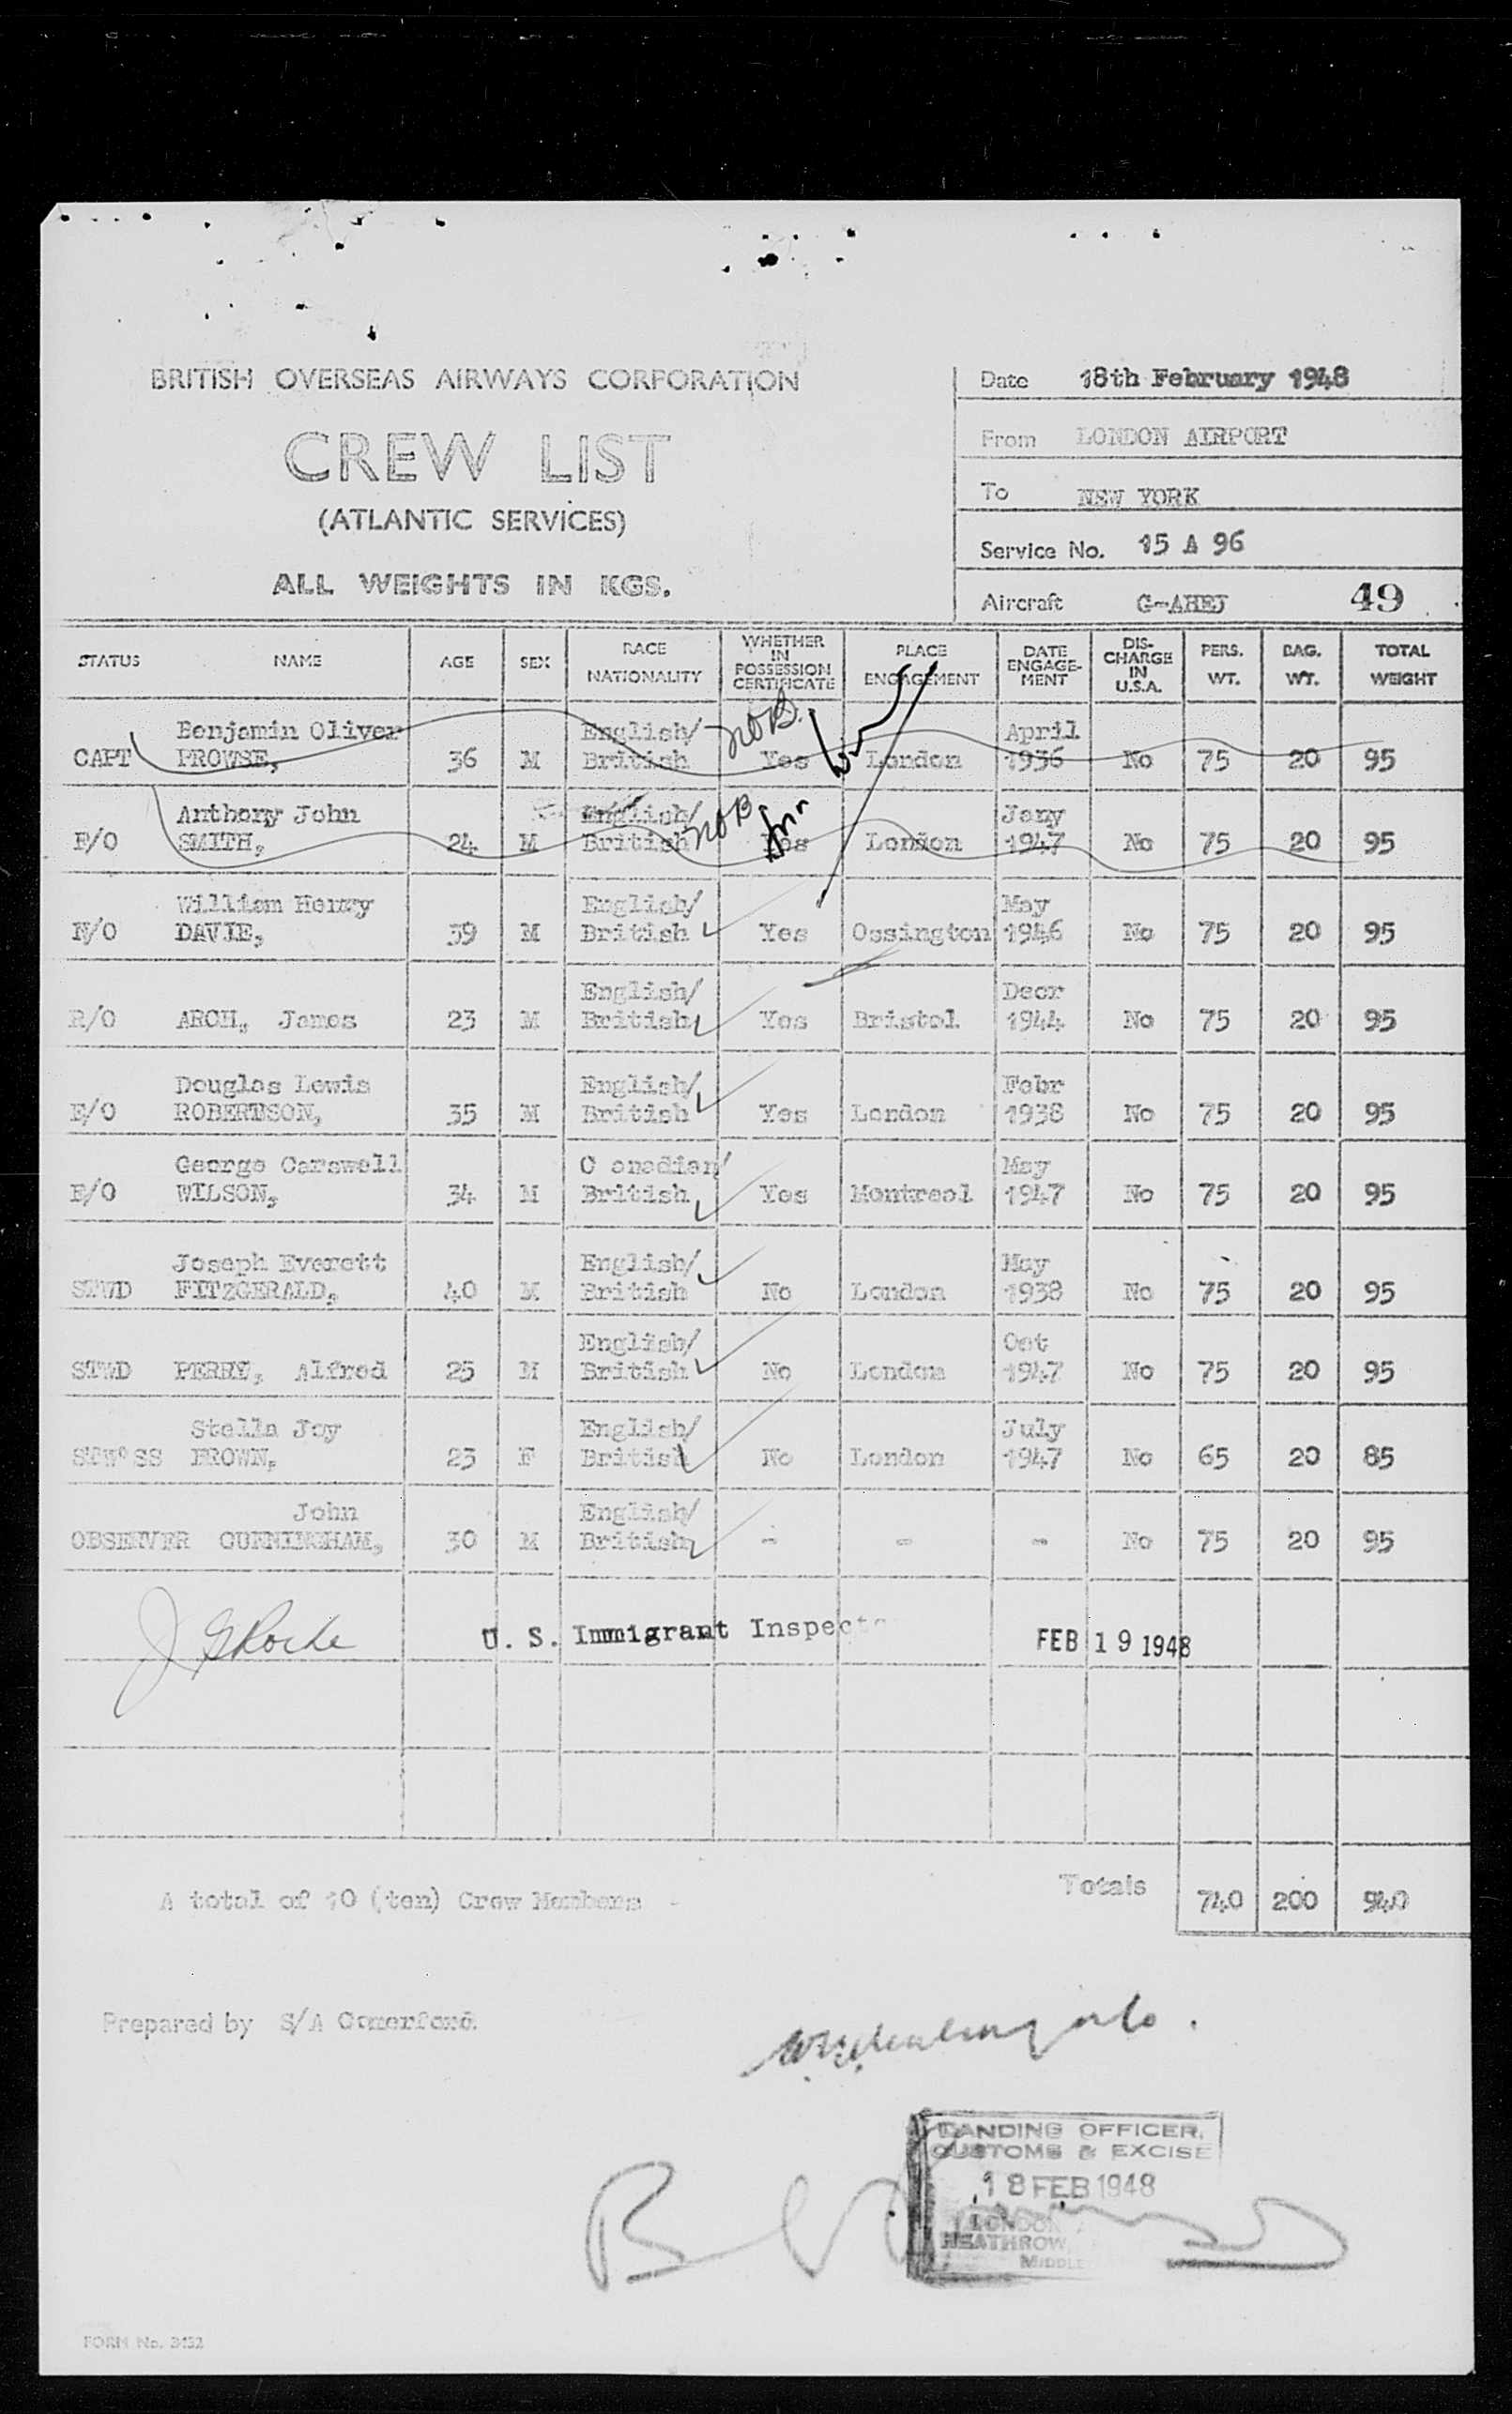 BRITISH OVERSEAS AIRWAYS CORPORATION
CREW LIST
(ATLANTIC SERVICES)
ALL WEIGHTS IN KGS.
Date 18th February 1948
From LONDON AIRPORT
To NEW YORK
Service No. 15 A 96
Aircraft G-AHEJ 49
STATUS NAME AGE SEX RACE NATIONALITY WHETHER IN POSSESSION CERTIFICATE PLACE ENGAGEMENT DATE ENGAGE-MENT DIS-CHARGE IN U.S.A. PERS. WT. BAG. WT. TOTAL WEIGHT
Benjamin Oliver English/ NOB. April
CAPT PROWSE, 36 M British Yes London 1936 No 75 20 95
Anthony John English/ NOB Jany
F/O SMITH, 24 M British Yes London 1947 No 75 20 95
William Henry English/ May
N/O DAVIE, 39 M British Yes Ossington 1946 No 75 20 95
English/ Decr
R/O ARCH, James 23 M British Yes Bristol 1944 No 75 20 95
Douglas Lewis English/ Febr
E/O ROBERTSON, 35 M British Yes London 1938 No 75 20 95
George Carswell C anadian/ May
E/O WILSON, 34 M British Yes Montreal 1947 No 75 20 95
Joseph Everett English/ May
STWD FITZGERALD, 40 M British No London 1938 No 75 20 95
English/ Oct
STWD PERRY, Alfred 25 M British No London 1947 No 75 20 95
Stella Joy English/ July
STW'SS BROWN, 23 F British No London 1947 No 65 20 85
John English/
OBSERVER CUNNINGHAM, 30 M British - - - No 75 20 95
U. S. Immigrant Inspector FEB 19 1948
A total of 10 (ten) Crew Members - Totals 740 200 940
Prepared by S/A Comerford.
LANDING OFFICER,
CUSTOMS & EXCISE
18 FEB 1948
LONDON
HEATHROW,
FORM No. 3132